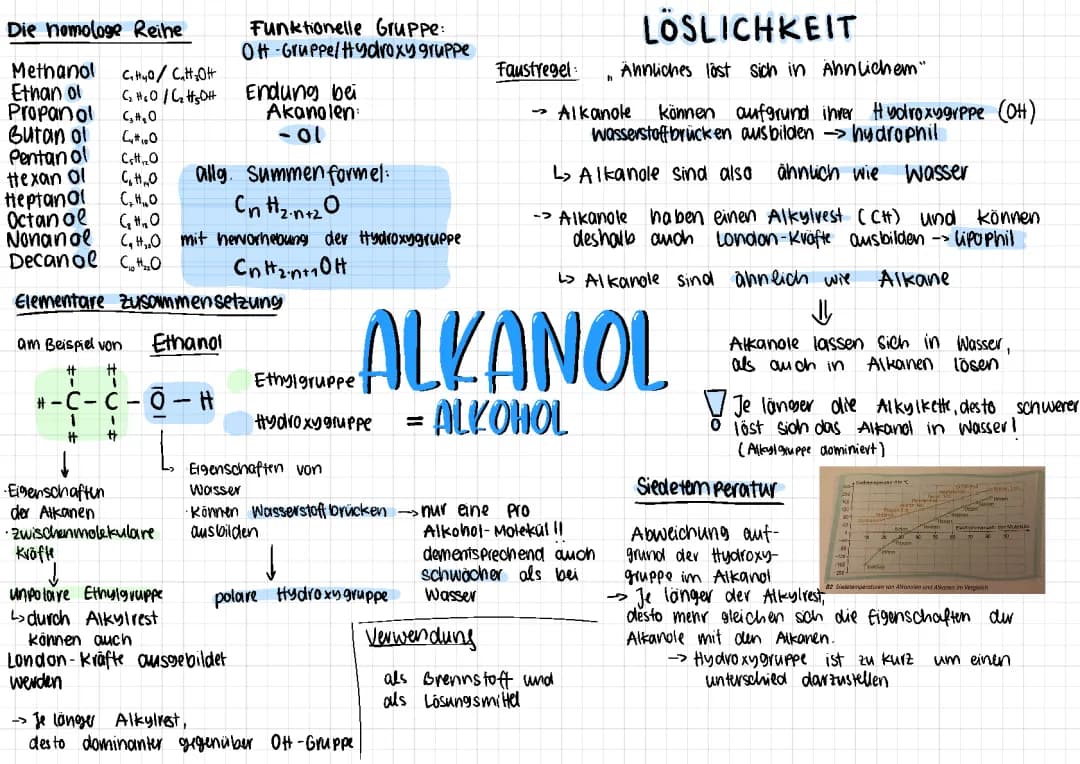 Die homologe Reihe
Methanol C₁H₄O / C₁H₃OH
Ethanol C₂H₆O / C₂H₅OH
Propanol C₃H₈O
Butanol C₄H₁₀O
Pentanol C₅H₁₂O
Hexanol
Heptanol
Octanol
Nonanol
Decanol C₁₀H₂₂O
Funktionelle Gruppe:
OH-Gruppe/Hydroxygruppe
Endung bei
Akanolen:
- ol
allg. Summenformel:
CnH2·n+2O
mit hervorhebung der Hydroxygruppe
CnH2·n+1OH
Elementare Zusammensetzung
am Beispiel von Ethanol
H H
H - C - C - O - H
H H
Ethylgruppe
Hydroxygruppe
ALKANOL
= ALKOHOL
·Eigenschaften
der Alkanen
·zwischenmolekulare
Kräfte
unpolare Ethylgruppe
↳ durch Alkylrest
können auch
London-Kräfte ausgebildet
werden
→ Je länger Alkylrest,
desto dominanter gegenüber OH-Gruppe
Eigenschaften von
Wasser
·können Wasserstoffbrücken
ausbilden
→ nur eine pro
Alkohol-Molekül!!
dementsprechend auch
schwächer als bei
Wasser
polare Hydroxygruppe
Verwendung
als Brennstoff und
als Lösungsmittel
LÖSLICHKEIT
Faustregel: „Ähnliches löst sich in Ähnlichem"
→ Alkanole können aufgrund ihrer Hydroxygrppe (OH)
Wasserstoffbrücken ausbilden → hydrophil
↳ Alkanole sind also ähnlich wie Wasser
→ Alkanole haben einen Alkylrest (CH) und können
deshalb auch London-Kräfte ausbilden → lipophil
↳ Alkanole sind ähnlich wie Alkane
⇓
Alkanole lassen sich in Wasser,
als auch in Alkanen lösen
! Je länger die Alkylkette, desto schwerer
löst sich das Alkanol in Wasser!
(Alkylgruppe dominiert)
Siedetemperatur
Abweichung auf-
grund der Hydroxy-
gruppe im Alkanol
→ Je länger der Alkylrest,
desto mehr gleichen sich die Eigenschaften der
Alkanole mit den Alkanen.
→ Hydroxygruppe ist zu kurz um einen
unterschied darzustellen
Siedetemperatur in °C
B2 Siedetemperaturen von Alkanolen und Alkanen im Vergleich